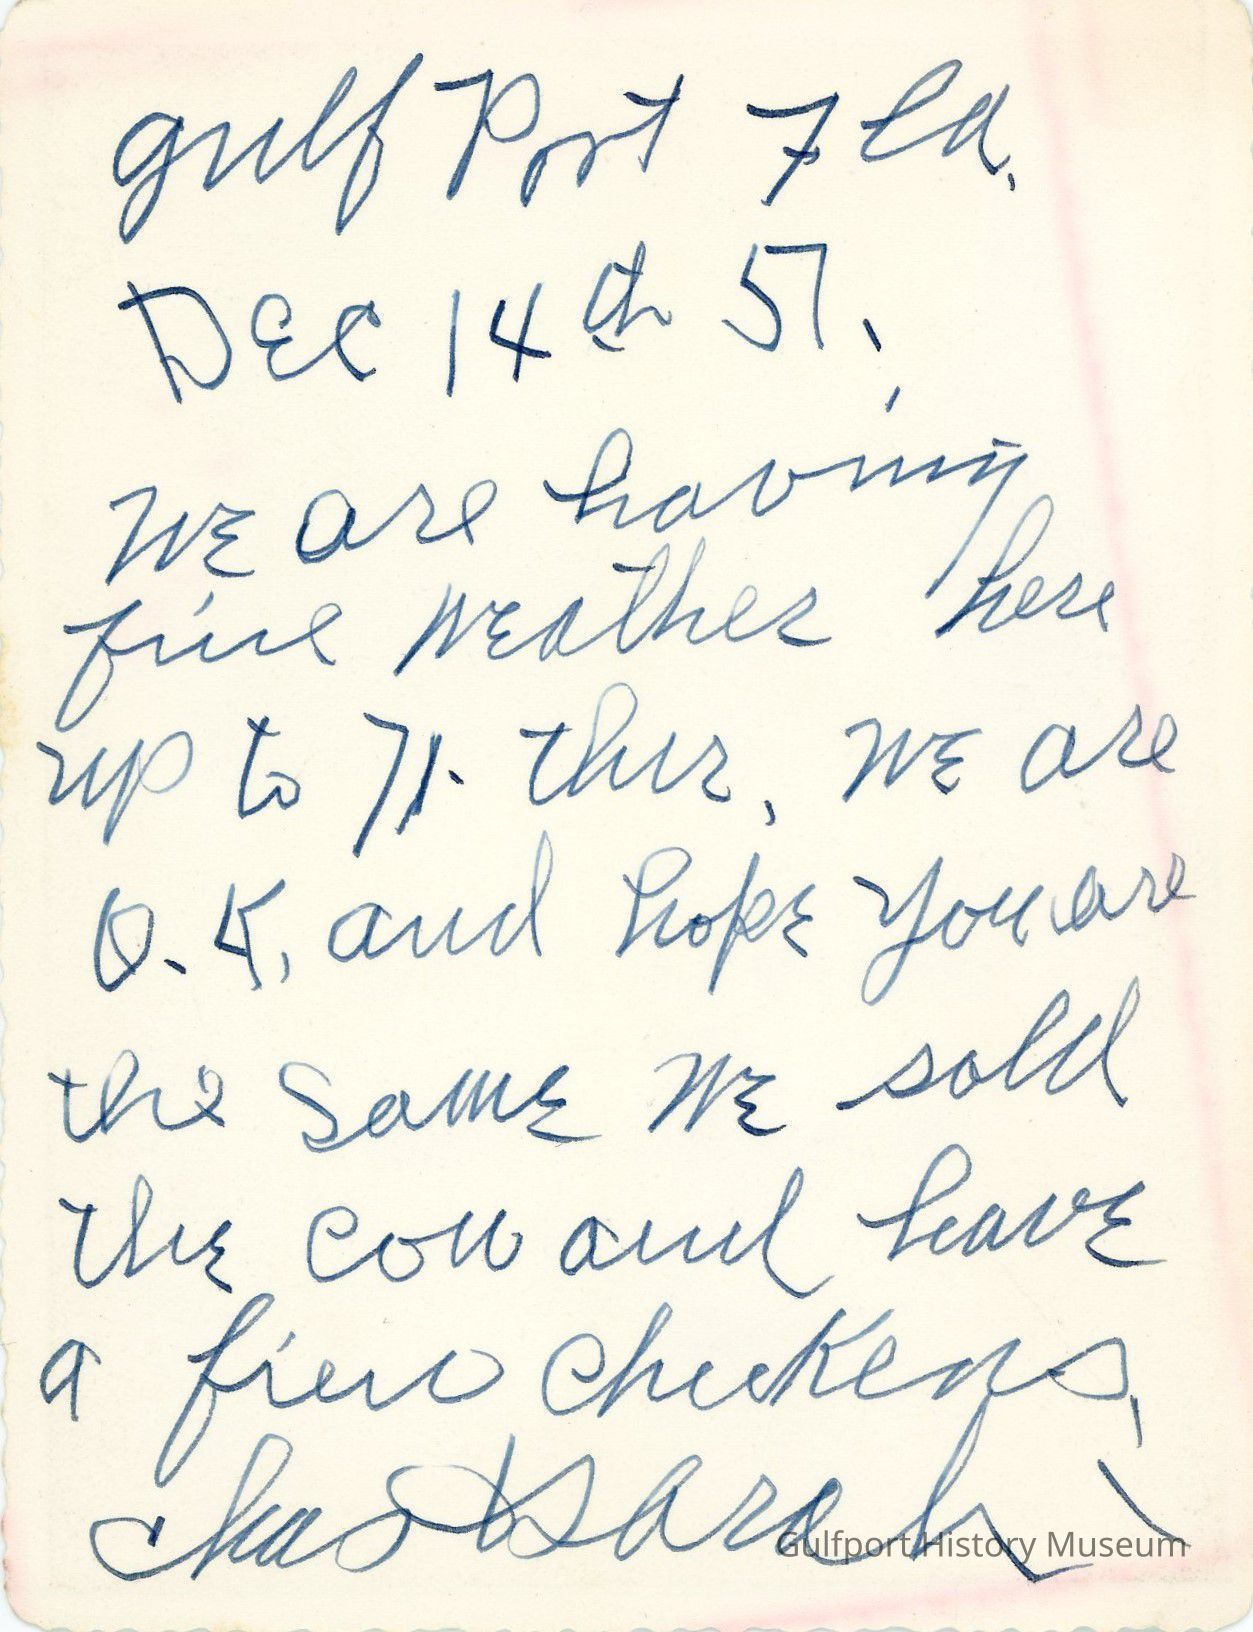 gulf Port Fla.
Dec 14th 57.
We are having
fine weather here
up to 71. ther, We are
O.K, and hope you are
the same We sold
the cow and have
a fiew chickens,
Chas
Gulfport History Museum